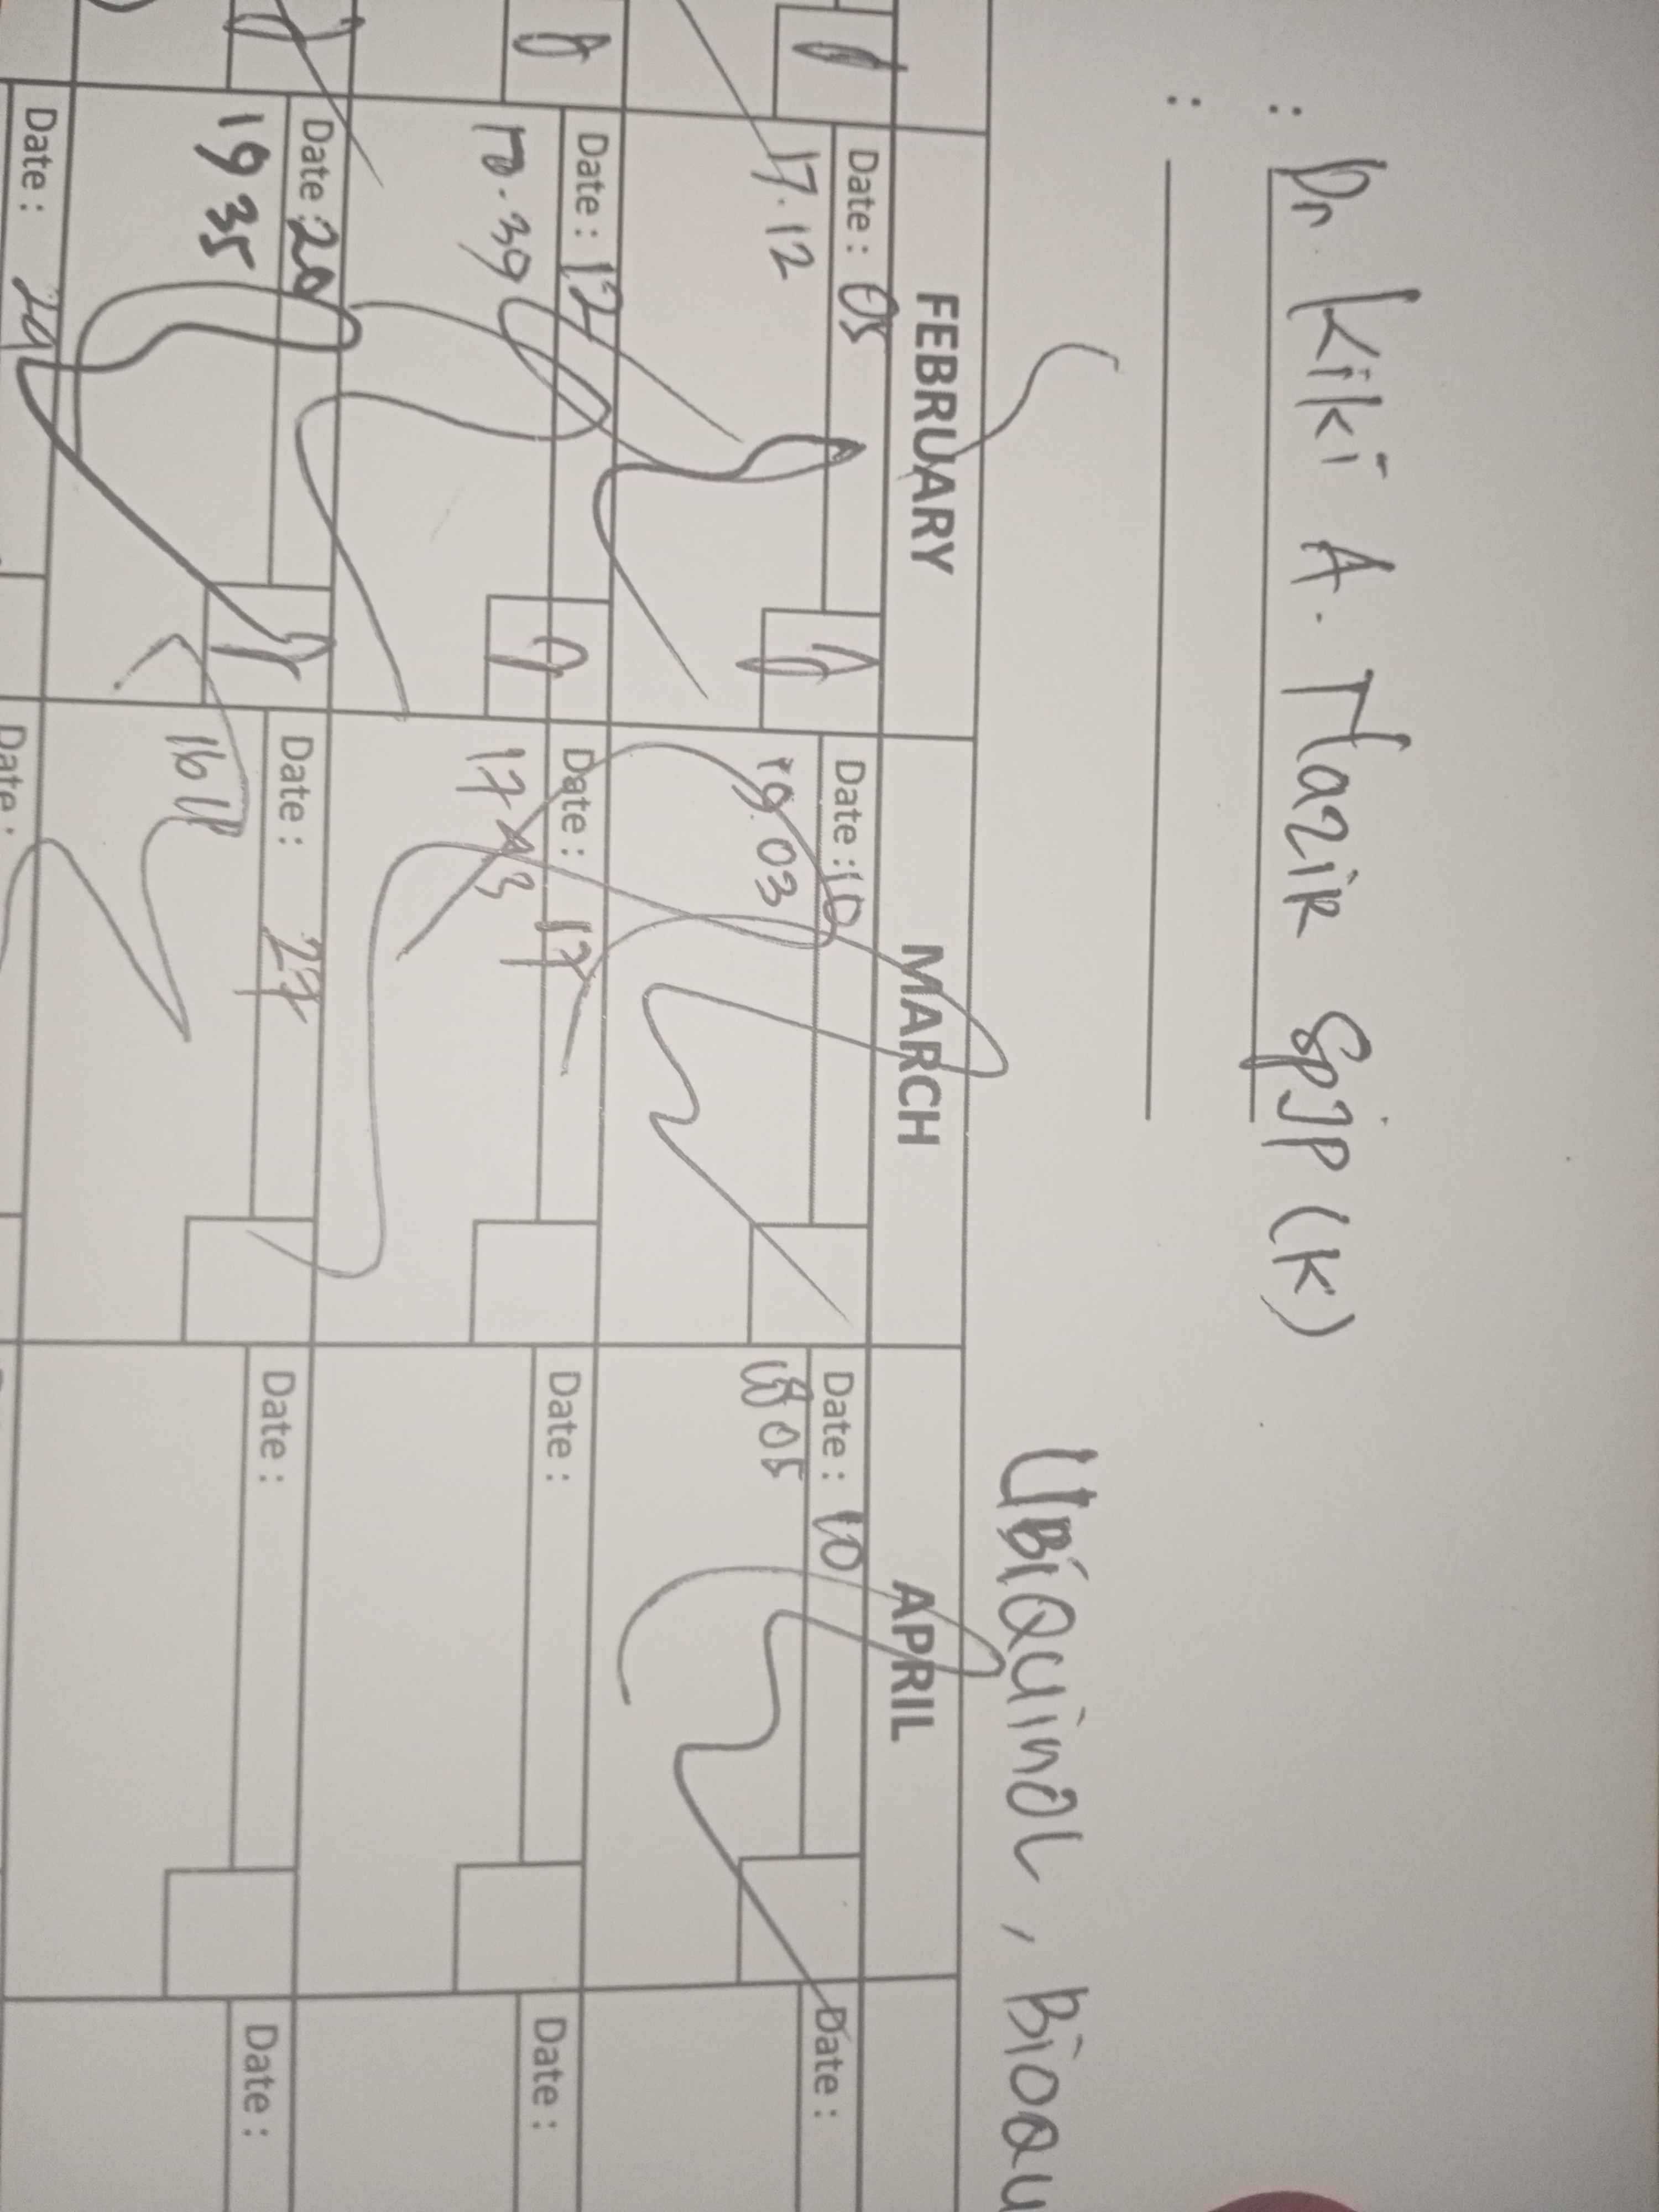 : Dr. Kiki A. Nazir SpJP (K)
:
UBiQuiNOL, BiOQU
FEBRUARY MARCH APRIL
Date : 05 Date : 10 Date : 10 Date :
17.12 19.03 1805
Date : 12 Date : 17 Date : Date :
17 43
Date : 20 Date : 27 Date : Date :
19 35
Date : Date :